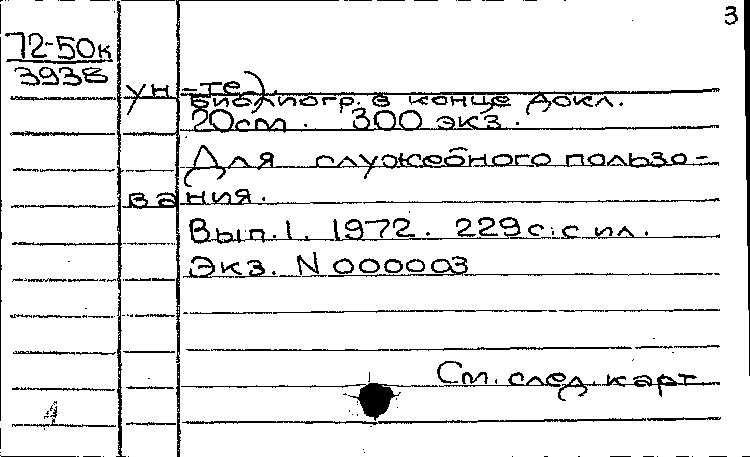 3
72-50к
3938
ун-те).
Библиогр. в конце докл.
20см. 300 экз.
Для служебного пользо-
вания.
Вып.1. 1972. 229с.с ил.
Экз. N 000003
См. след. карт